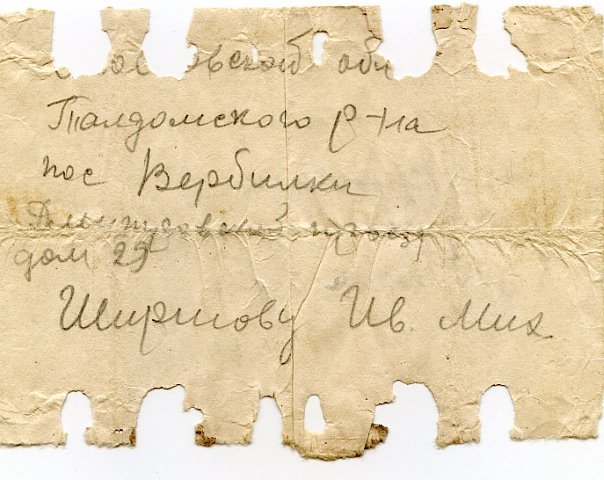 Московской обл
Талдомского р-на
пос Вербилки
Дмитровский проезд
дом 29
Ширшову Ив. Мих